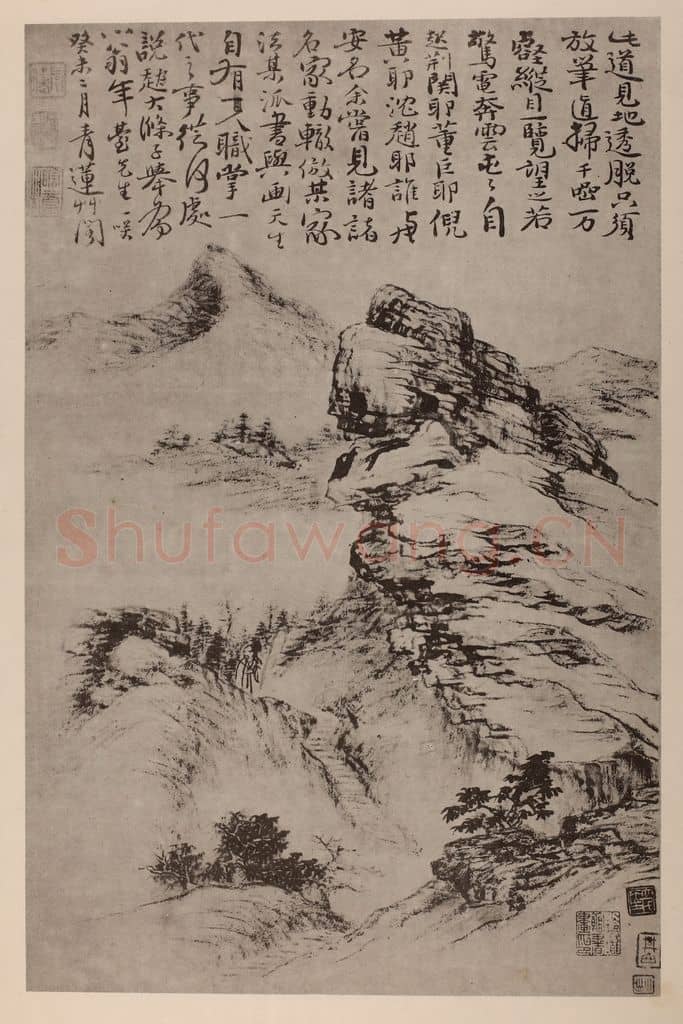 此道見地透脫只須
放筆直掃千巖万
壑縱目一覽望之若
驚電奔雲屯屯自
起荊關耶董巨耶倪
黃耶沈趙耶誰與
安名余嘗見諸諸
名家動輒倣某家
法某派書與画天生
自有一人職掌一
代之事從何處
說起大滌子舉為
翁年臺先生一咲
癸未二月青蓮草閣
Shufawang.CN